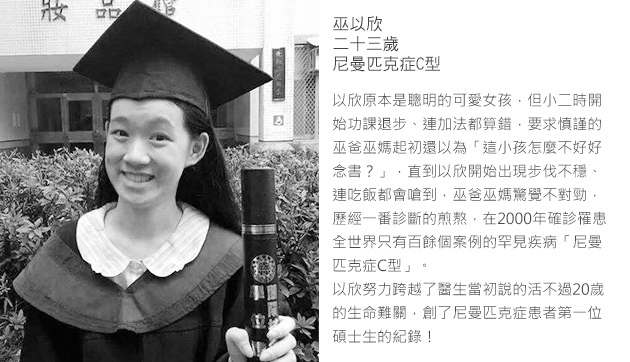 妝品館
巫以欣
二十三歲
尼曼匹克症C型
以欣原本是聰明的可愛女孩，但小二時開
始功課退步、連加法都算錯，要求慎謹的
巫爸巫媽起初還以為「這小孩怎麼不好好
念書？」，直到以欣開始出現步伐不穩、
連吃飯都會嗆到，巫爸巫媽驚覺不對勁，
歷經一番診斷的煎熬，在2000年確診罹患
全世界只有百餘個案例的罕見疾病「尼曼
匹克症C型」。
以欣努力跨越了醫生當初說的活不過20歲
的生命難關，創了尼曼匹克症患者第一位
碩士生的紀錄！